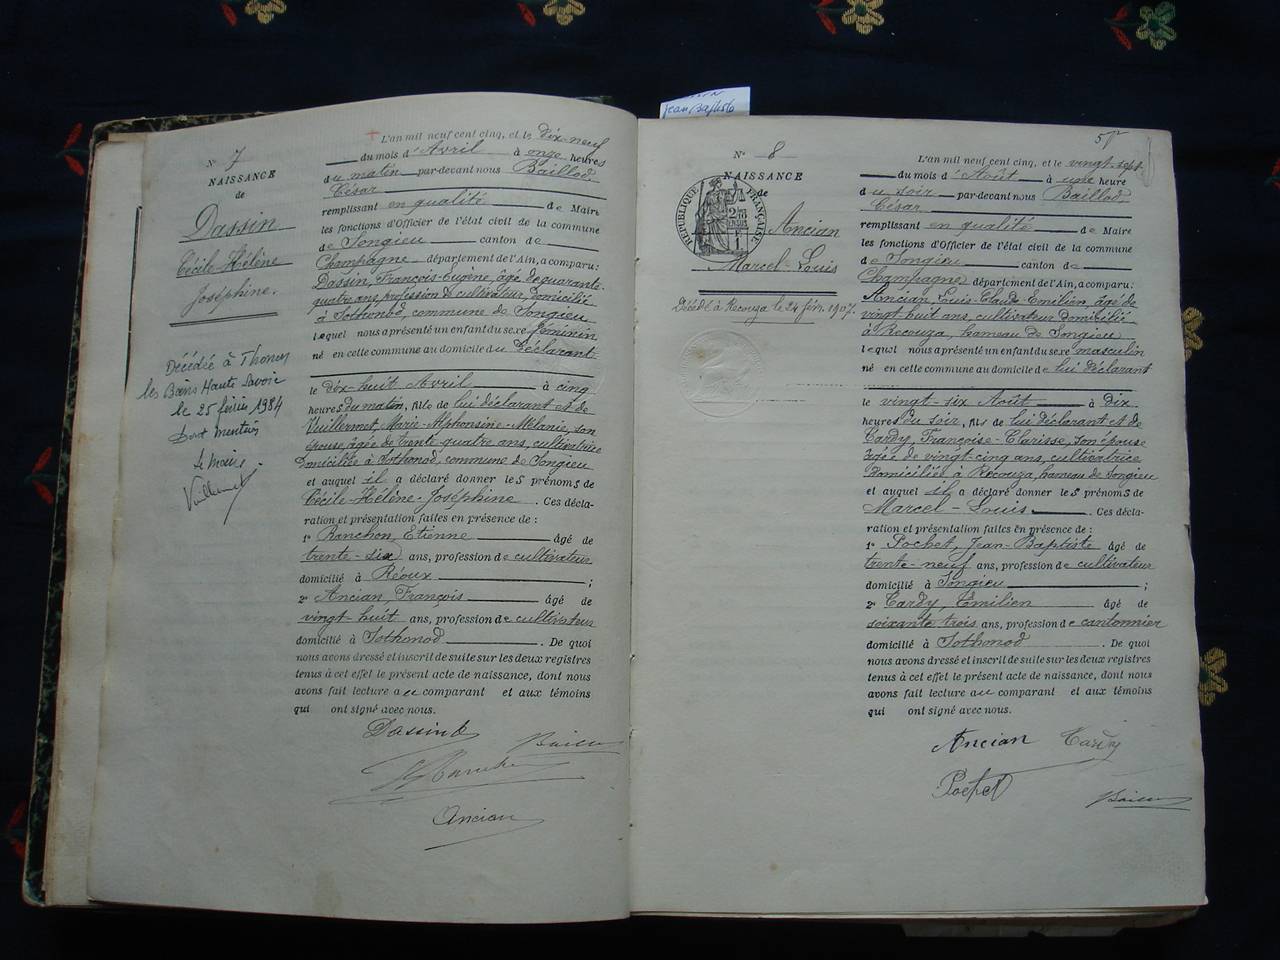 Jean Baptiste
N° 7
NAISSANCE
de
Dassin
Cécile-Hélène
Joséphine.
Décédée à Thonon
les Bains Haute Savoie
le 25 février 1984
Le Maire
Vuillermet
L'an mil neuf cent cinq, et le Dix-neuf
du mois d'Avril à onze heures
du matin par-devant nous BailloD
César
remplissant en qualité de Maire
les fonctions d'Officier de l'état civil de la commune
de Songieu canton de
Champagne département de l'Ain, a comparu:
Dassin, François-Eugène, âgé de quarante-
quatre ans, profession de cultivateur, domicilié
à Sothonod, commune de Songieu
lequel nous a présenté un enfant du sexe féminin
né en cette commune au domicile du Déclarant
le Dix-huit Avril à cinq
heures du matin, fille de lui déclarant et de
Vuillermet, Marie-Alphonsine-Mélanie, son
épouse, âgée de trente-quatre ans, cultivatrice
Domiciliée à Sothonod, commune de Songieu
et auquel il a déclaré donner les prénoms de
Cécile-Hélène-Joséphine. Ces décla-
ration et présentation faites en présence de :
1° Ranchon, Etienne âgé de
trente-six ans, profession de cultivateur
domicilié à Réoux ;
2° Ancian, François âgé de
vingt-huit ans, profession de cultivateur
domicilié à Sothonod. De quoi
nous avons dressé et inscrit de suite sur les deux registres
tenus à cet effet le présent acte de naissance, dont nous
avons fait lecture au comparant et aux témoins
qui ont signé avec nous.
Ancian
N° 8
NAISSANCE
de
RÉPUBLIQUE FRANÇAISE
Ancian
Marcel-Louis
Décédé à Recouza le 24 fév. 1907.
L'an mil neuf cent cinq, et le vingt-sept
du mois d'Août à une heure
du soir par-devant nous BailloD,
César
remplissant en qualité de Maire
les fonctions d'Officier de l'état civil de la commune
de Songieu canton de
Champagne département de l'Ain, a comparu:
Ancian, Louis-Claude-Emilien, âgé de
vingt huit ans, cultivateur domicilié
à Recouza, hameau de Songieu
lequel nous a présenté un enfant du sexe masculin
né en cette commune au domicile de lui déclarant
le vingt-six Août à dix
heures du soir, fils de lui déclarant et de
Cardy, Françoise-Clarisse, son épouse
âgée de vingt cinq ans, cultivatrice
Domiciliés à Recouza, hameau de Songieu
et auquel il a déclaré donner les prénoms de
Marcel-Louis. Ces décla-
ration et présentation faites en présence de :
1° Pochet, Jean-Baptiste âgé de
trente-neuf ans, profession de cultivateur
domicilié à Songieu ;
2° Cardy, Emilien âgé de
soixante trois ans, profession de cantonnier
domicilié à Sothonod. De quoi
nous avons dressé et inscrit de suite sur les deux registres
tenus à cet effet le présent acte de naissance, dont nous
avons fait lecture au comparant et aux témoins
qui ont signé avec nous.
Ancian Cardy
Pochet